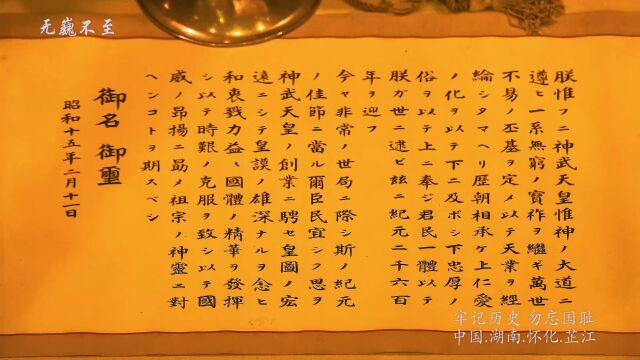 无巍不至
朕惟フニ神武天皇惟神ノ大道ニ
遵ヒ一系無窮ノ寶祚ヲ繼ギ萬世
不易ノ丕基ヲ定メ以テ天業ヲ經
綸シタマヘリ歷朝相承ケ上仁愛
ノ化ヲ以テ下ニ及ボシ下忠厚ノ
俗ヲ以テ上ニ奉ジ君民一體以テ
朕ガ世ニ逮ビ玆ニ紀元二千六百
年ヲ迎フ
今ヤ非常ノ世局ニ際シ斯ノ紀元
ノ佳節ニ當ル爾臣民宜シク思ヲ
神武天皇ノ創業ニ騁セ皇圖ノ宏
遠ニシテ皇謨ノ雄深ナルヲ念ヒ
和衷戮力益〻國體ノ精華ヲ發揮
シ以テ時艱ノ克服ヲ致シ以テ國
威ノ昂揚ニ勗メ祖宗ノ神靈ニ對
ヘンコトヲ期スベシ
御名 御璽
昭和十五年二月十一日
牢记历史 勿忘国耻
中国.湖南.怀化.芷江